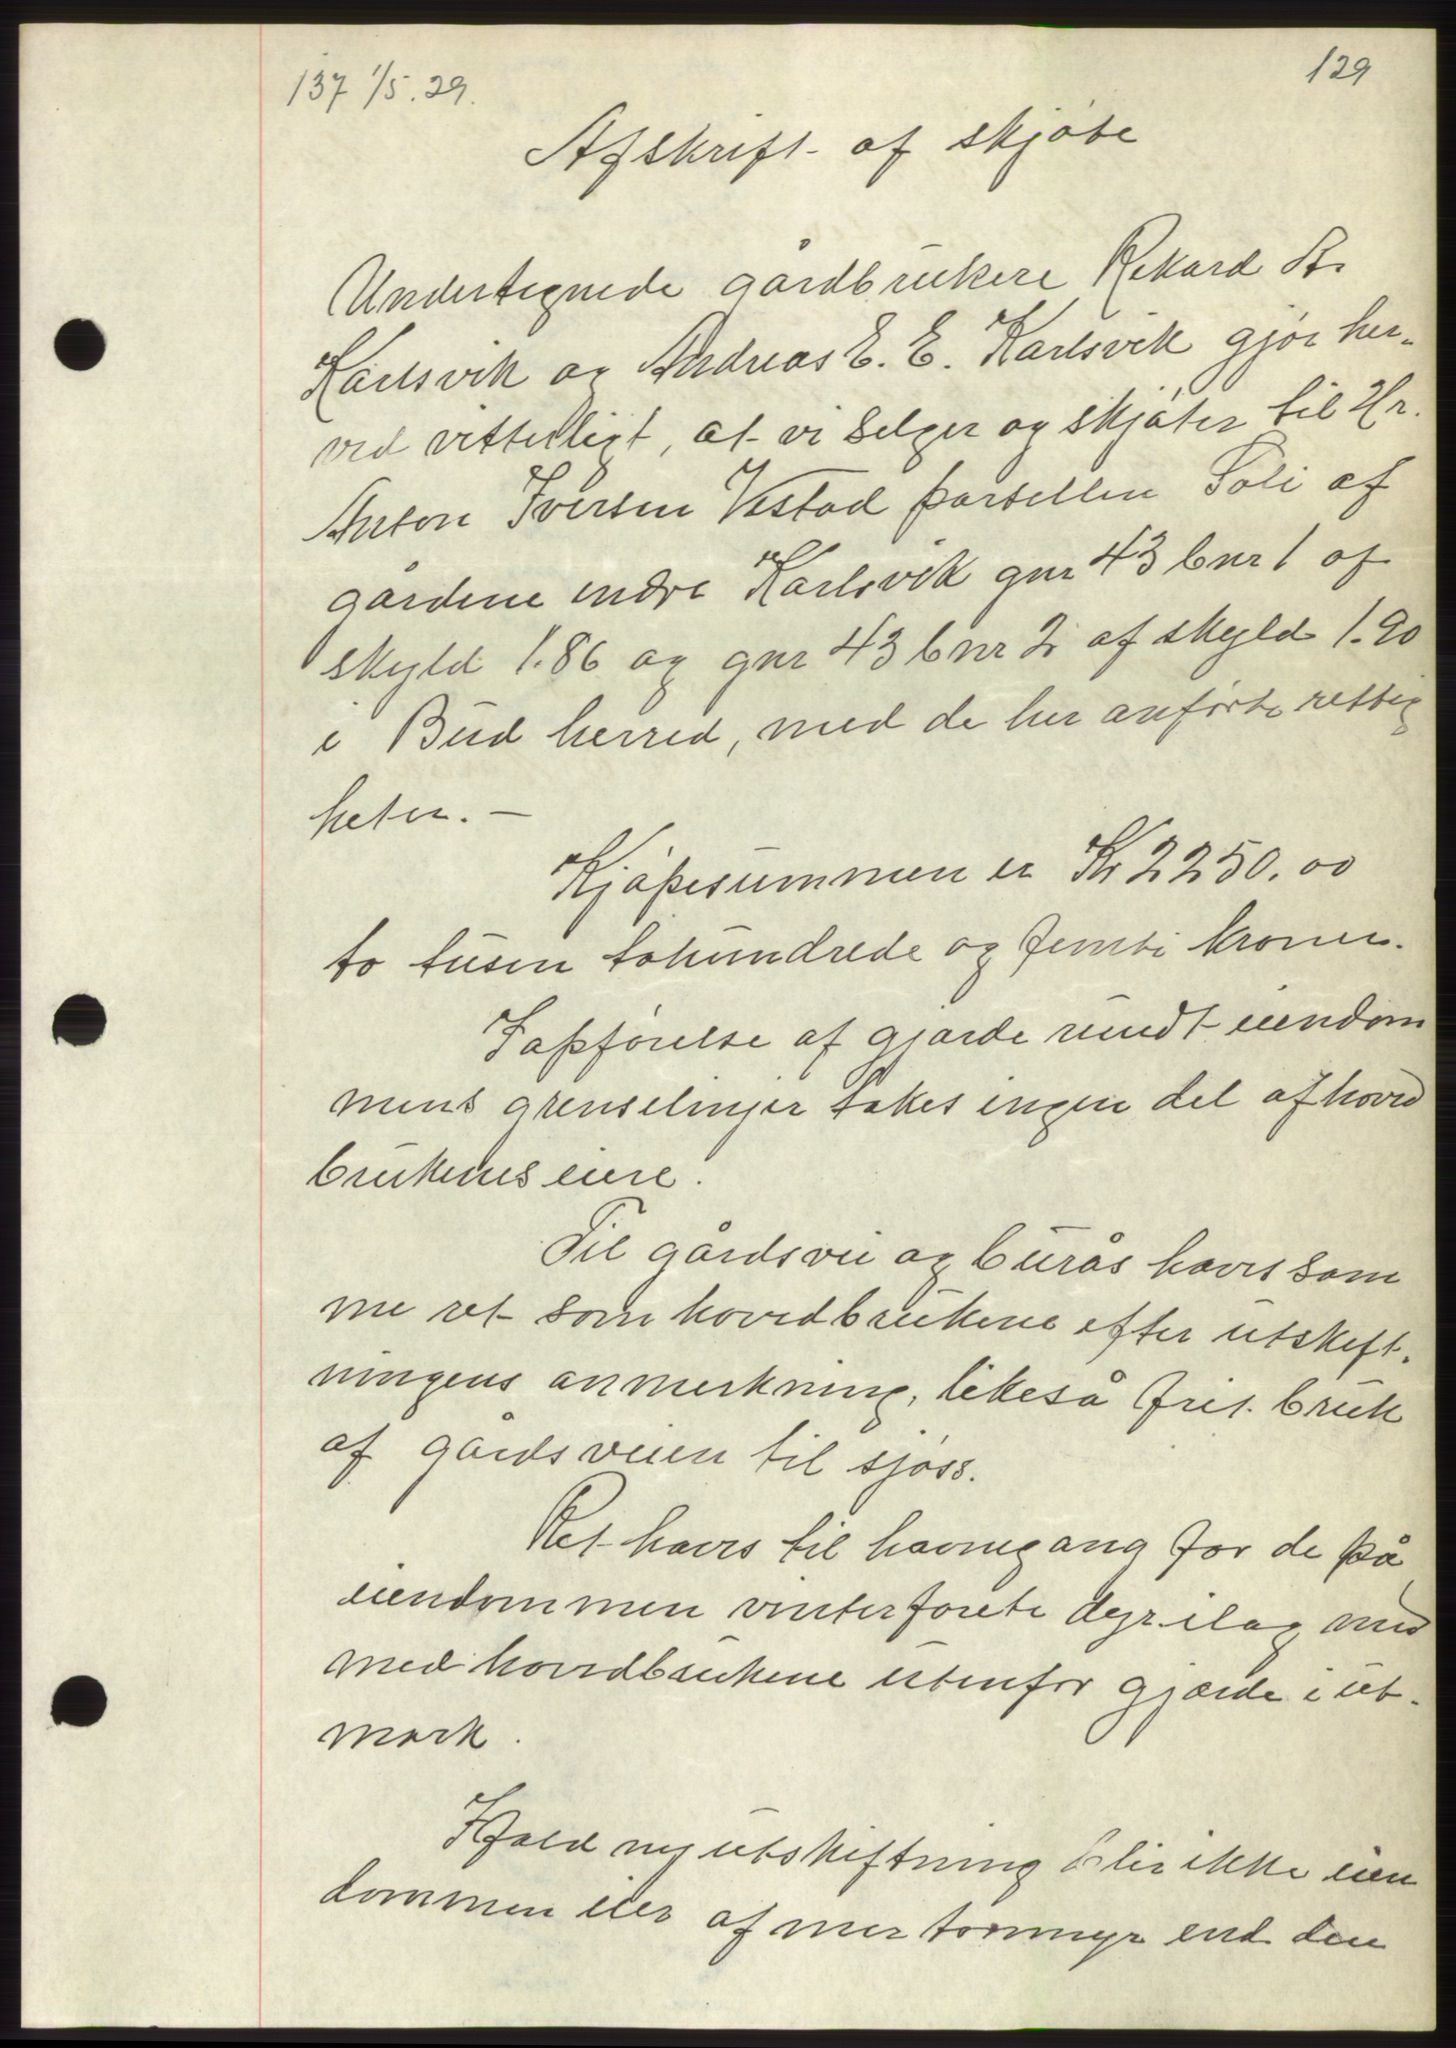 137 1/5. 29.
129
Afskrift af skjøte
Undertegnede gårdbrukere Rikard St.
Karlsvik og Andreas E. E. Karlsvik gjør her-
ved vitterligt, at vi selger og skjøter til Hr.
Anton Iversen Vestad parsellen Soli af
gårdene indre Karlsvik gnr 43 bnr 1 af
skyld 1.86 og gnr 43 bnr 2 af skyld 1.90
i Bud herred, med de her anførte rettig
heter. —
Kjøpesummen er Kr 2250.00
to tusen tohundrede og femti kroner.
I opførelse af gjærde rundt eiendom
mens grenselinjer takes ingen del af hoved
brukenes eiere.
Til gårdsvei og burås haves sam
me ret som hovedbrukene efter utskift-
ningens anmerkning, likeså frit bruk
af gårdsveien til sjøss.
Ret haves til havnegang for de på
eiendommen vinterforete dyr ilag med
med hovedbrukene utenfor gjærde i ut-
mark.
Ifald ny utskiftning blir ikke eien
dommen eier af mer torvmyr end den